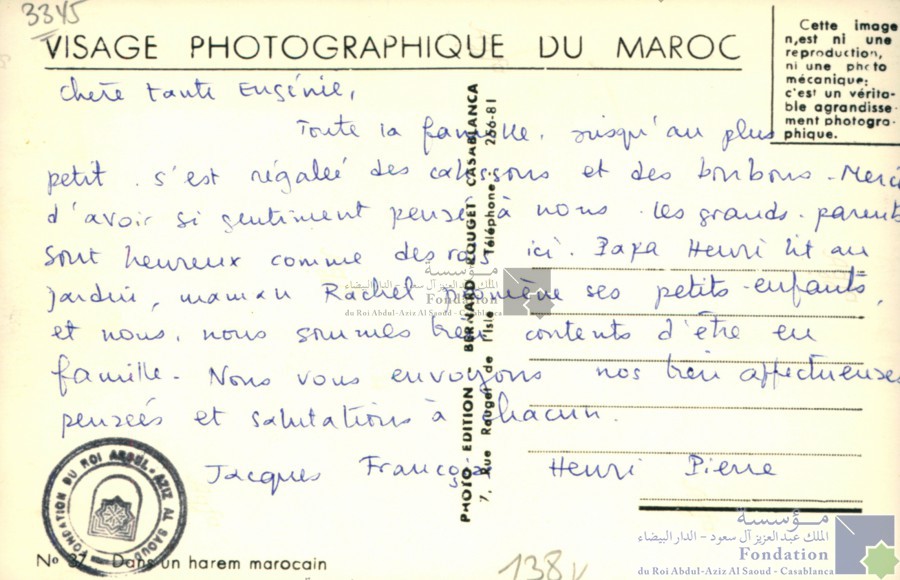 3345
VISAGE PHOTOGRAPHIQUE DU MAROC
Cette image
n,est ni une
reproduction,
ni une photo
mécanique;
c'est un vérita-
ble agrandisse-
ment photogra-
phique.
Chère tante Eugénie,
Toute la famille, jusqu'au plus
petit, s'est régalée des calissons et des bonbons. Merci
d'avoir si gentiment pensé à nous. Les grands-parents
sont heureux comme des rois ici. Papa Henri lit au
jardin, maman Rachel promène ses petits-enfants,
et nous, nous sommes bien contents d'être en
famille. Nous vous envoyons nos bien affectueuses
pensées et salutations à chacun.
Jacques François Henri Pierre
PHOTO EDITION BERNARD ROUGET CASABLANCA
7, Rue Rouget de l'Isle Téléphone: 266-81
FONDATION DU ROI ABDUL-AZIZ AL SAOUD
No 37 - Dans un harem marocain
138
مؤسسة
الملك عبد العزيز آل سعود - الدار البيضاء
Fondation
du Roi Abdul-Aziz Al Saoud - Casablanca
مؤسسة
الملك عبد العزيز آل سعود - الدار البيضاء
Fondation
du Roi Abdul-Aziz Al Saoud - Casablanca